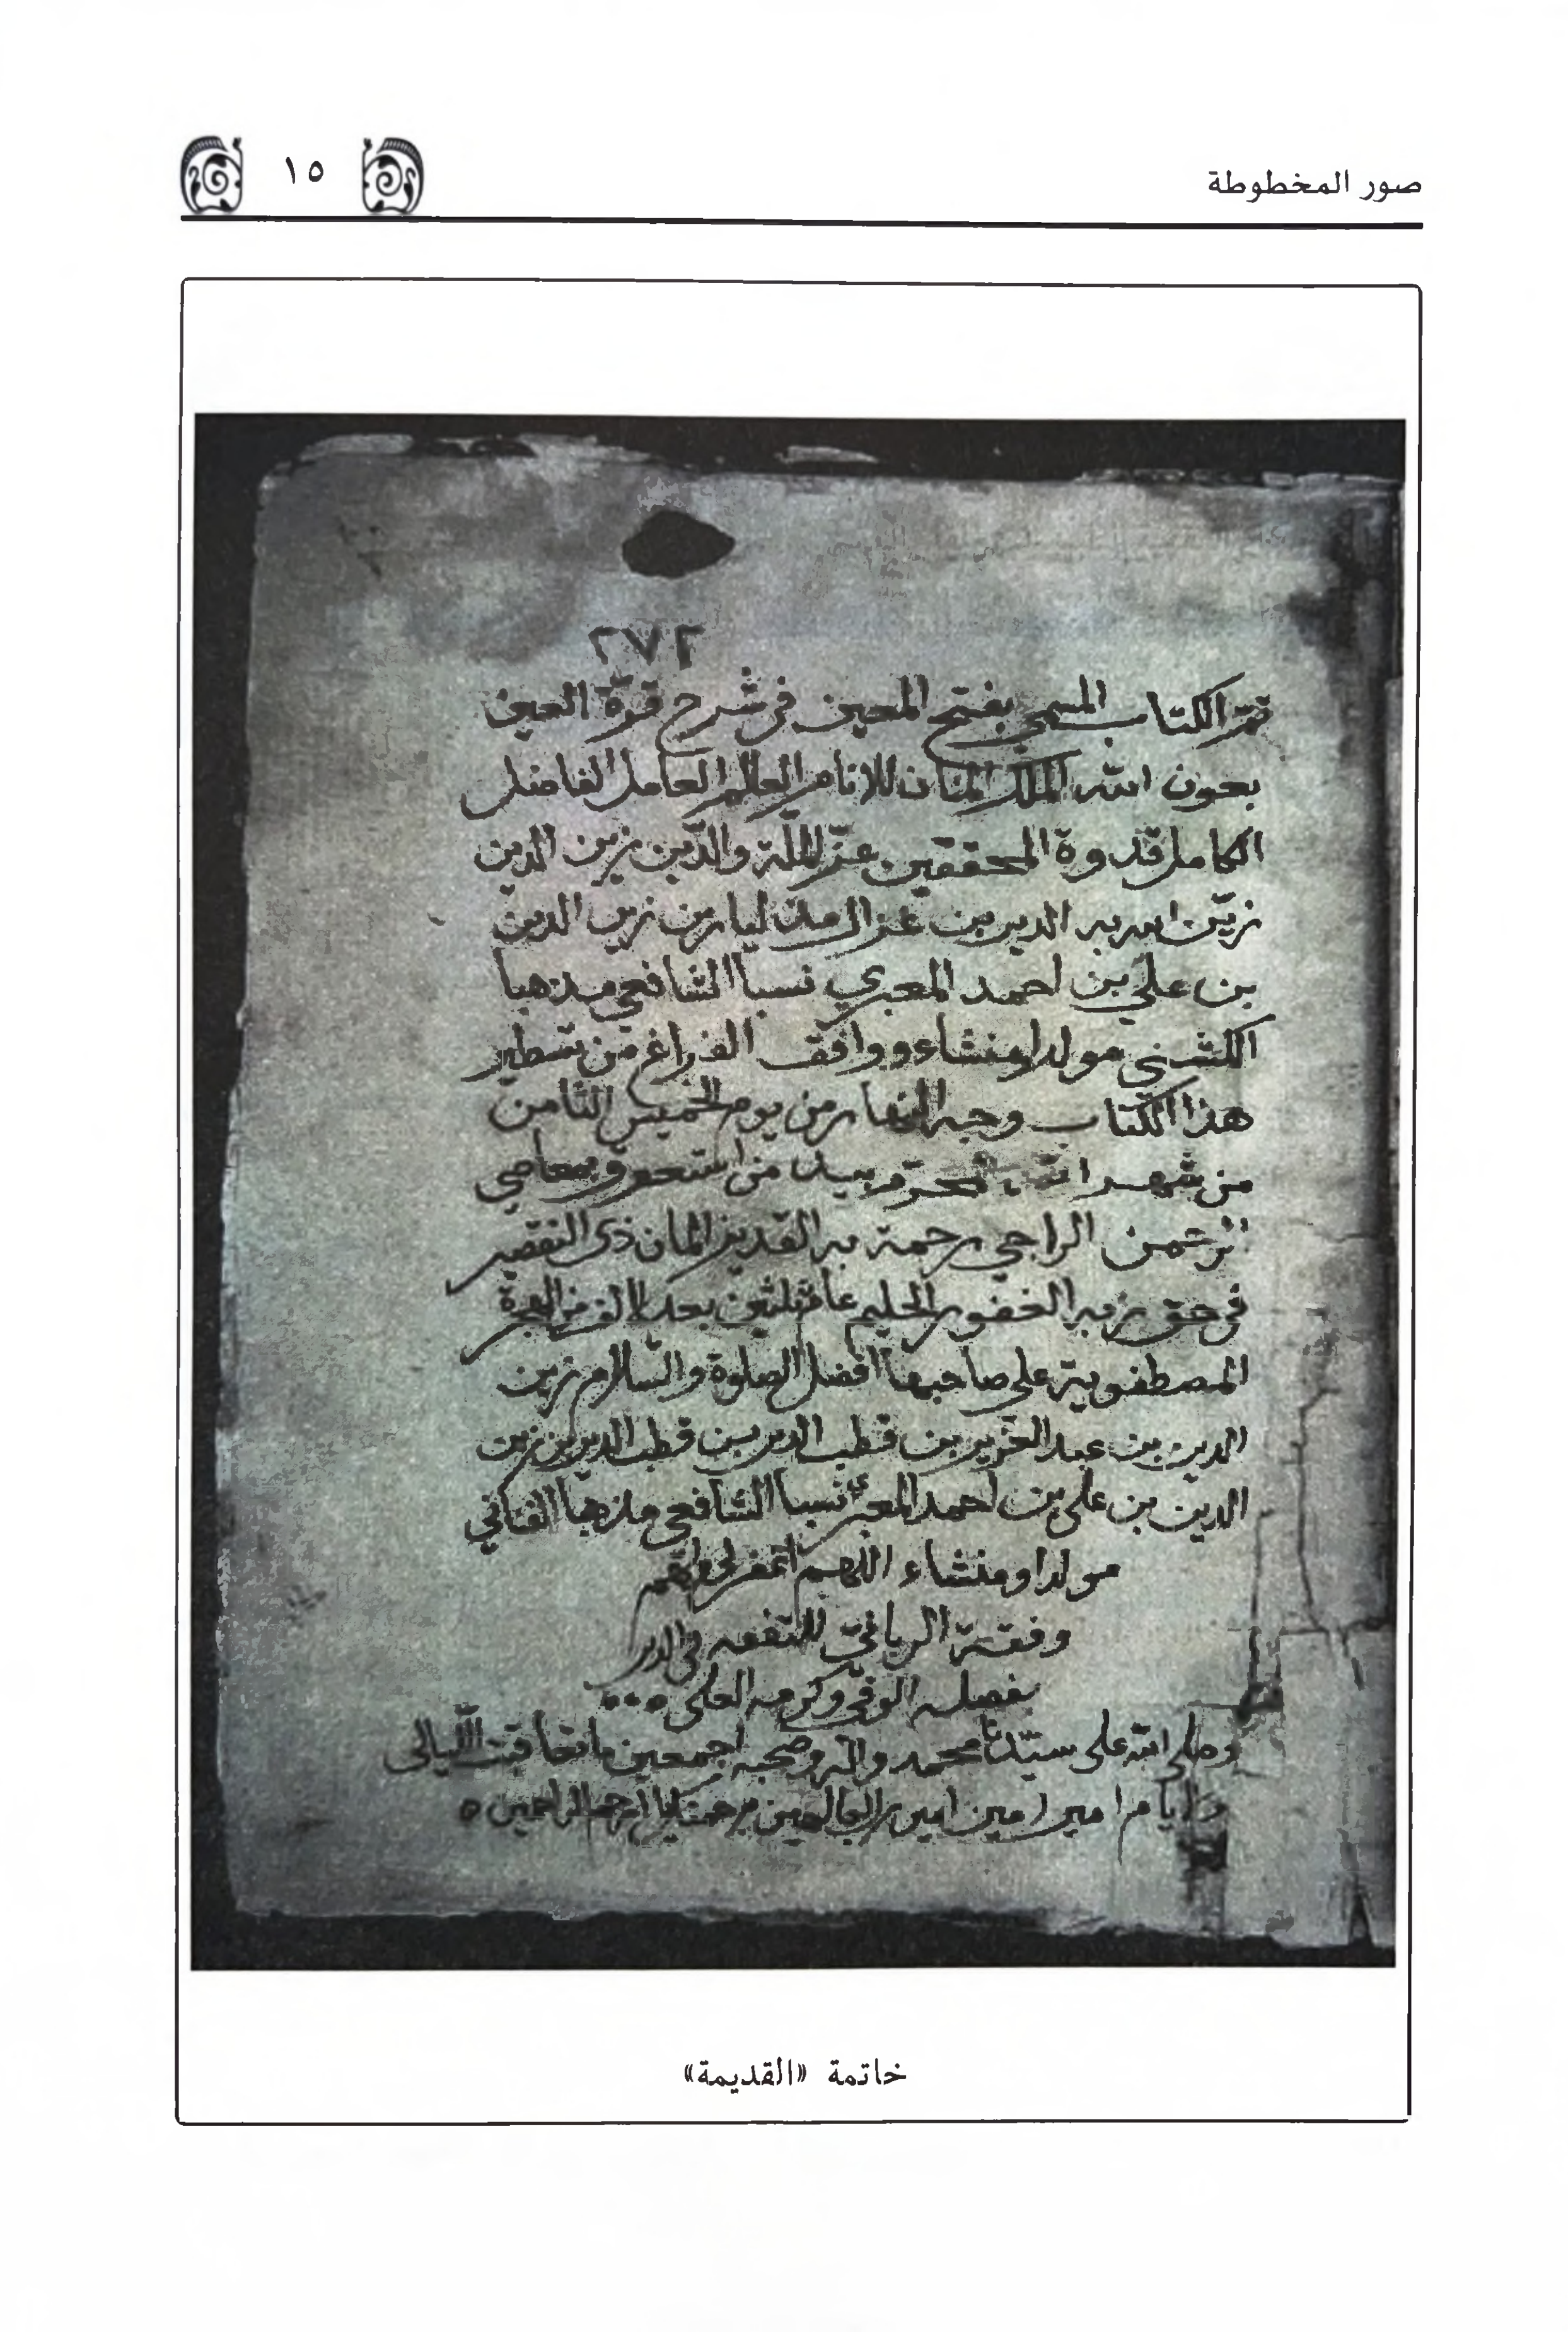 صور المخطوطة
١٥
٢٧٢
تم الكتاب المسمى بفتح المعين في شرح قرة العين
بعون الله الملك المنان للامام العالم العامل الفاضل
الكامل قدوة المحققين عز الملة والدين زين الدين
زين الله به الدين بن
بن علي بن احمد المعبري نسبا الشافعي مذهبا
مولدا ومنشاء ووافق الفراغ من تسطير
هذا الكتاب وجه النهار من يوم الخميس الثامن
من شهر الله المحرم بيد من
الرحمن الراجي رحمة ربه القدير المنان ذى التقصير
في حق ربه الغفور الحليم عام ثلثين بعد الالف من الهجرة
المصطفوية على صاحبها افضل الصلوة والسلام زين
الدين بن عبد العزيز بن قطب الدين بن قطب الدين بن زين
الدين بن علي بن احمد المعبري نسبا الشافعي مذهبا الفناني
مولدا ومنشاء اللهم اغفر لي
للتفقه في الدين
بفضله الوفي وكرمه العلي
وصلى الله على سيدنا محمد واله وصحبه اجمعين ما تعاقبت الليالى
والايام امين امين امين رب العالمين برحمتك يا ارحم الراحمين
خاتمة «القديمة»